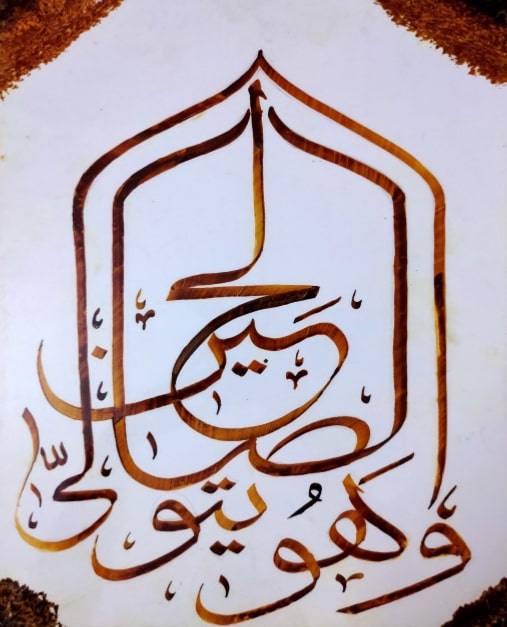 وهو يتولى الصالحين